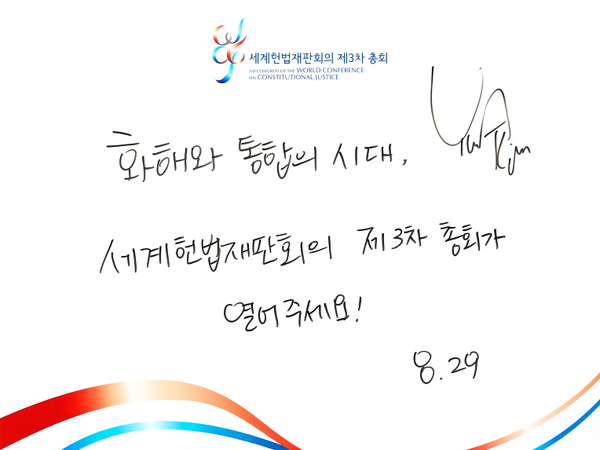 세계헌법재판회의 제3차 총회
3rd CONGRESS OF THE WORLD CONFERENCE
ON CONSTITUTIONAL JUSTICE
화해와 통합의 시대,
세계헌법재판회의 제3차 총회가
열어주세요!
8.29